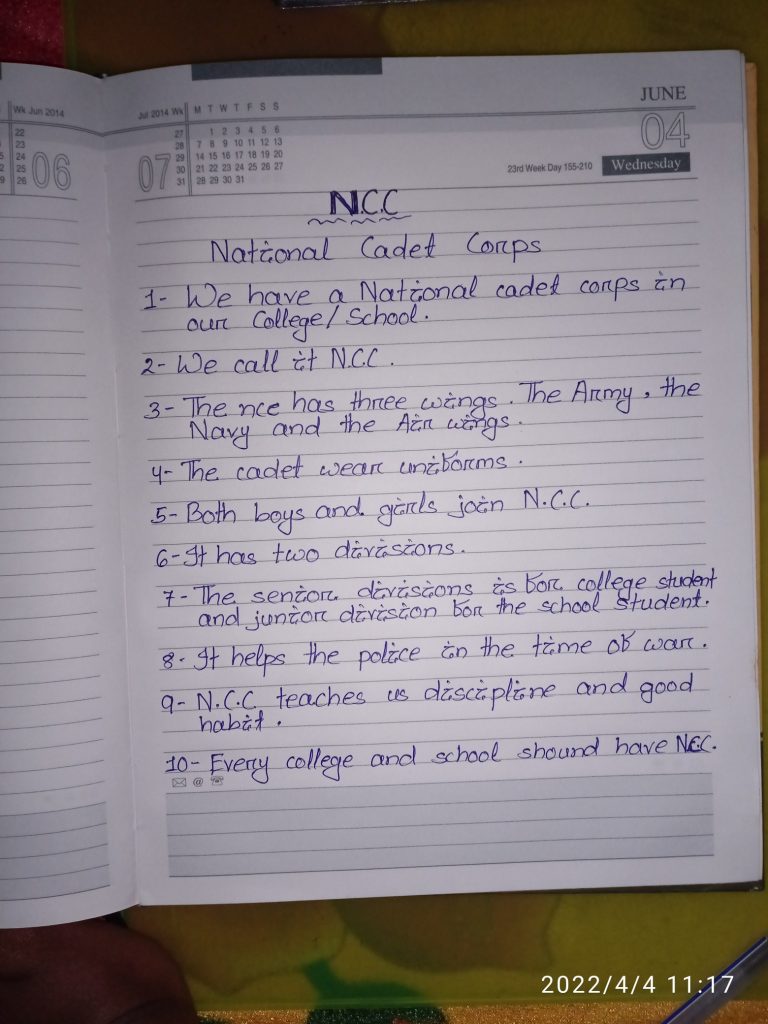 Wk Jun 2014
22
23
24
25
26
06
Jul 2014 Wk M T W T F S S
27 1 2 3 4 5 6
28 7 8 9 10 11 12 13
07 29 14 15 16 17 18 19 20
30 21 22 23 24 25 26 27
31 28 29 30 31
JUNE
04
23rd Week Day 155-210 Wednesday
N.C.C
National Cadet Corps
1- We have a National cadet corps in
our College/School.
2- We call it N.C.C.
3- The ncc has three wings. The Army, the
Navy and the Air wings.
4- The cadet wear uniforms.
5- Both boys and girls join N.C.C.
6- It has two divisions.
7- The senior divisions is for college student
and junior division for the school student.
8- It helps the police in the time of war.
9- N.C.C teaches us discipline and good
habit.
10- Every college and school shound have N.C.C.
@
2022/4/4 11:17